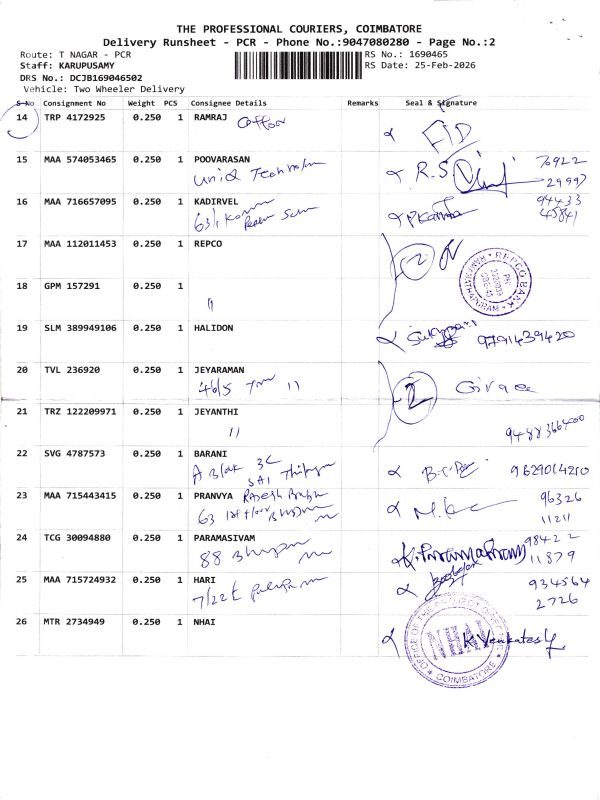 THE PROFESSIONAL COURIERS, COIMBATORE
Delivery Runsheet - PCR - Phone No.:9047080280 - Page No.:2
Route: T NAGAR - PCR RS No.: 1690465
Staff: KARUPUSAMY RS Date: 25-Feb-2026
DRS No.: DCJB169046502
Vehicle: Two Wheeler Delivery
S No Consignment No Weight PCS Consignee Details Remarks Seal & Signature
14 TRP 4172925 0.250 1 RAMRAJ
15 MAA 574053465 0.250 1 POOVARASAN
R.S 70922
29997
16 MAA 716657095 0.250 1 KADIRVEL
94433
45841
17 MAA 112011453 0.250 1 REPCO
2
REPCO BANK
18 GPM 157291 0.250 1
19 SLM 389949106 0.250 1 HALIDON
9791439420
20 TVL 236920 0.250 1 JEYARAMAN
46/5 11
2
21 TRZ 122209971 0.250 1 JEYANTHI
11
9488366400
22 SVG 4787573 0.250 1 BARANI
A Blok 3C
SAI
9629014210
23 MAA 715443415 0.250 1 PRANVYA
63 1st floor
96326
11211
24 TCG 30094880 0.250 1 PARAMASIVAM
88
98422
11879
25 MAA 715724932 0.250 1 HARI
7/22E
934564
2726
26 MTR 2734949 0.250 1 NHAI
OFFICE OF THE PROJECT DIRECTOR
NHAI
COIMBATORE